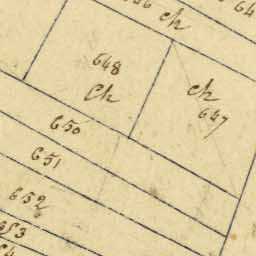 646 Ch
64
648
Ch
Ch
647
650
651
652
653